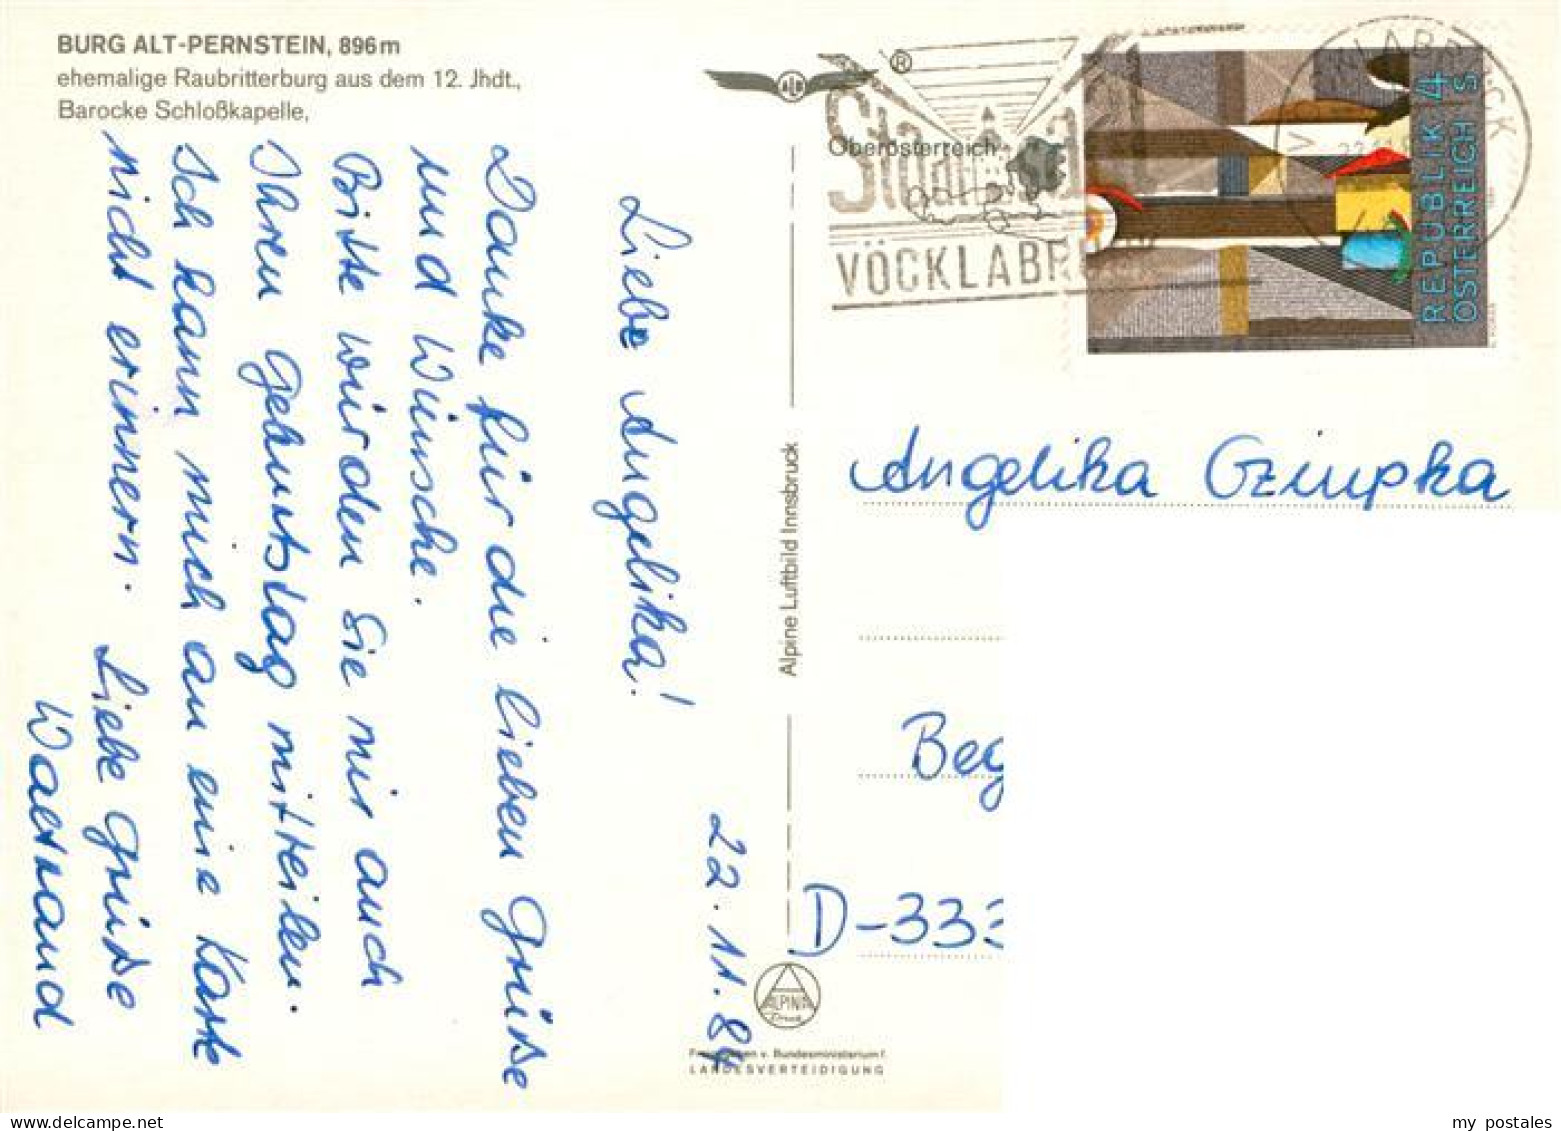 BURG ALT-PERNSTEIN, 896m
ehemalige Raubritterburg aus dem 12. Jhdt.,
Barocke Schloßkapelle,
Oberösterreich
22.11.84
Liebe Angelika!
Danke für die lieben Grüße
und Wünsche.
Bitte würden Sie mir auch
Ihren Geburtstag mitteilen.
Ich kann mich an eine Karte
nicht erinnern. Liebe Grüße
Waltraud
Alpine Luftbild Innsbruck
ALPINA
Druck
v. Bundesministerium f.
LANDESVERTEIDIGUNG
®
VÖCKLABRUCK
VÖCKLABRUCK
REPUBLIK 4
ÖSTERREICH S
Angelika
Beg
D-333
my postales